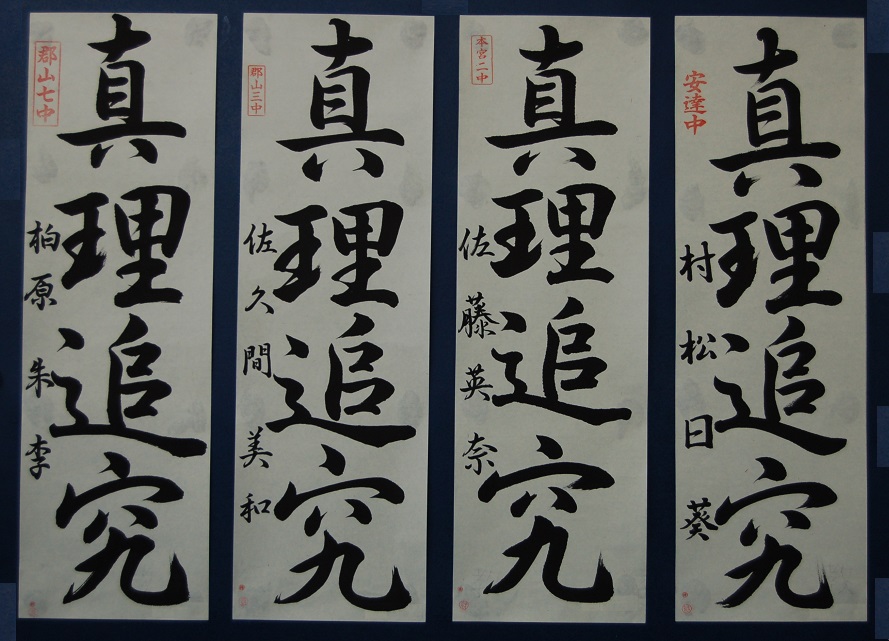 真理追究
安達中
村松日葵
真理追究
本宮二中
佐藤英奈
真理追究
郡山三中
佐久間美和
真理追究
郡山七中
柏原朱李